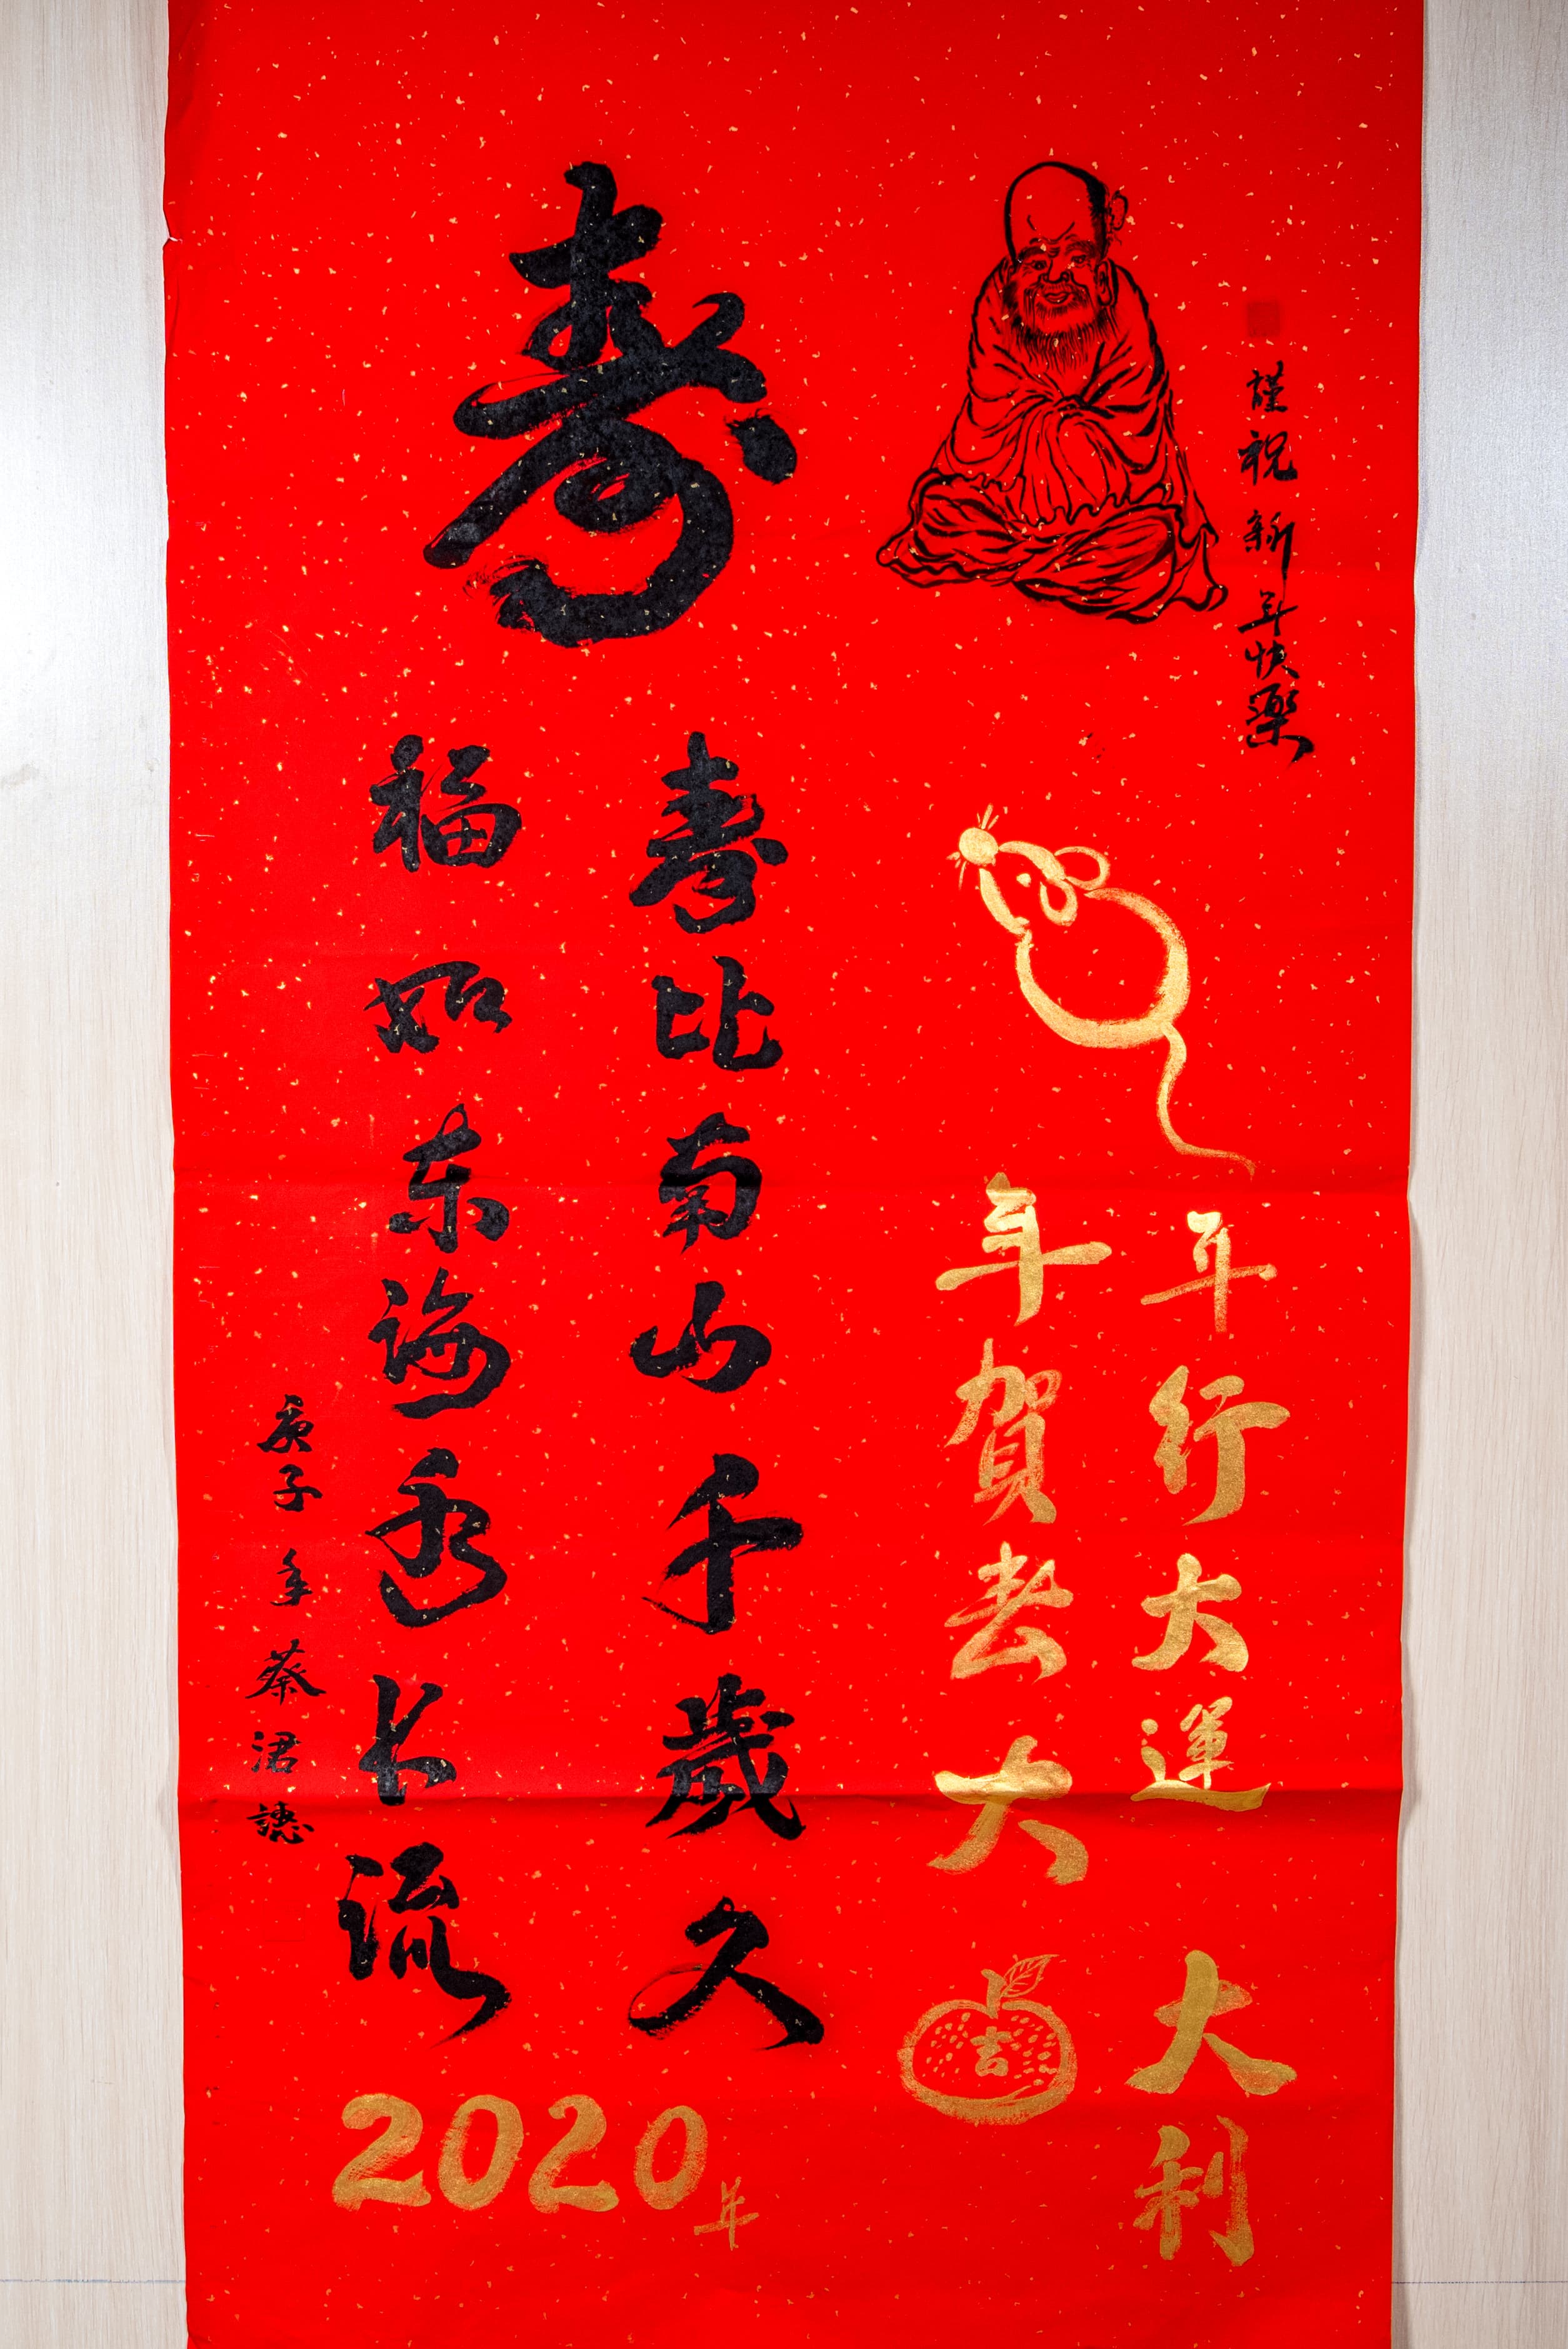 謹祝新年快樂
年行大運
大利
年賀大
吉
壽
壽比南山千歲久
福如东海永长流
庚子年蔡涒
2020年